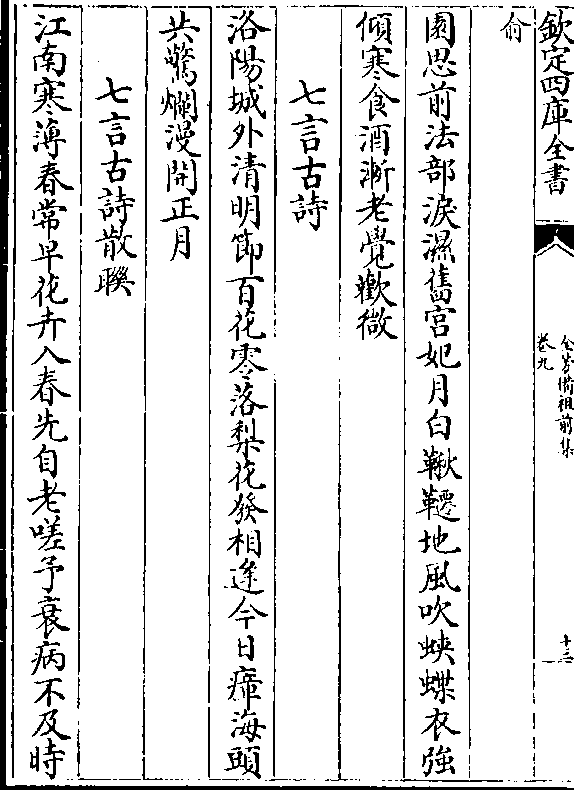 欽定四庫全書
全芳備祖前集
卷九
十三
俞
園思前法部淚濕舊宮妃月白鞦韆地風吹蛺蝶衣強
傾寒食酒漸老覺歡微
七言古詩
洛陽城外清明節百花零落梨花發相逢今日瘴海頭
共驚爛漫開正月
七言古詩散聯
江南寒薄春常早花卉入春先自老嗟予衰病不及時